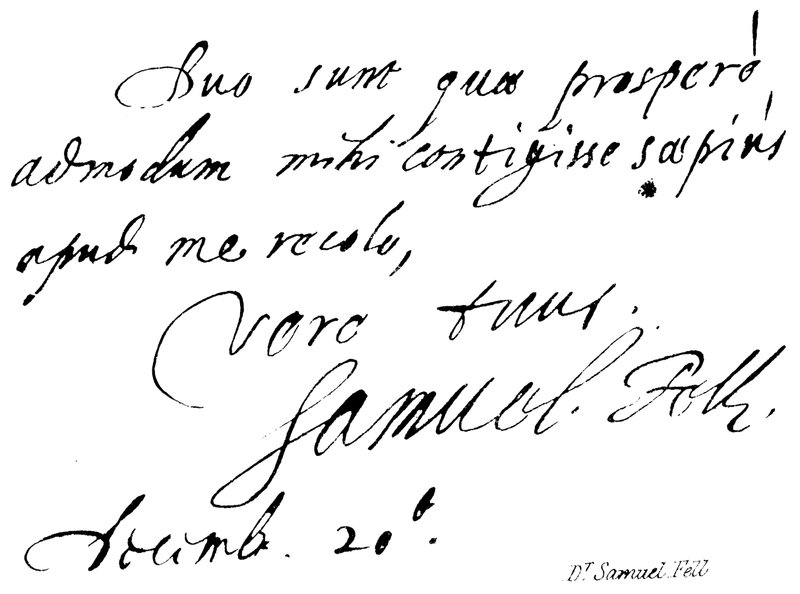 Duo sunt quæ prosperé
admodum mihi contigisse sæpiús
apud me recolo,
Vere tuus.
Samuel. Fell.
Decemb. 20°.
Dr Samuel Fell